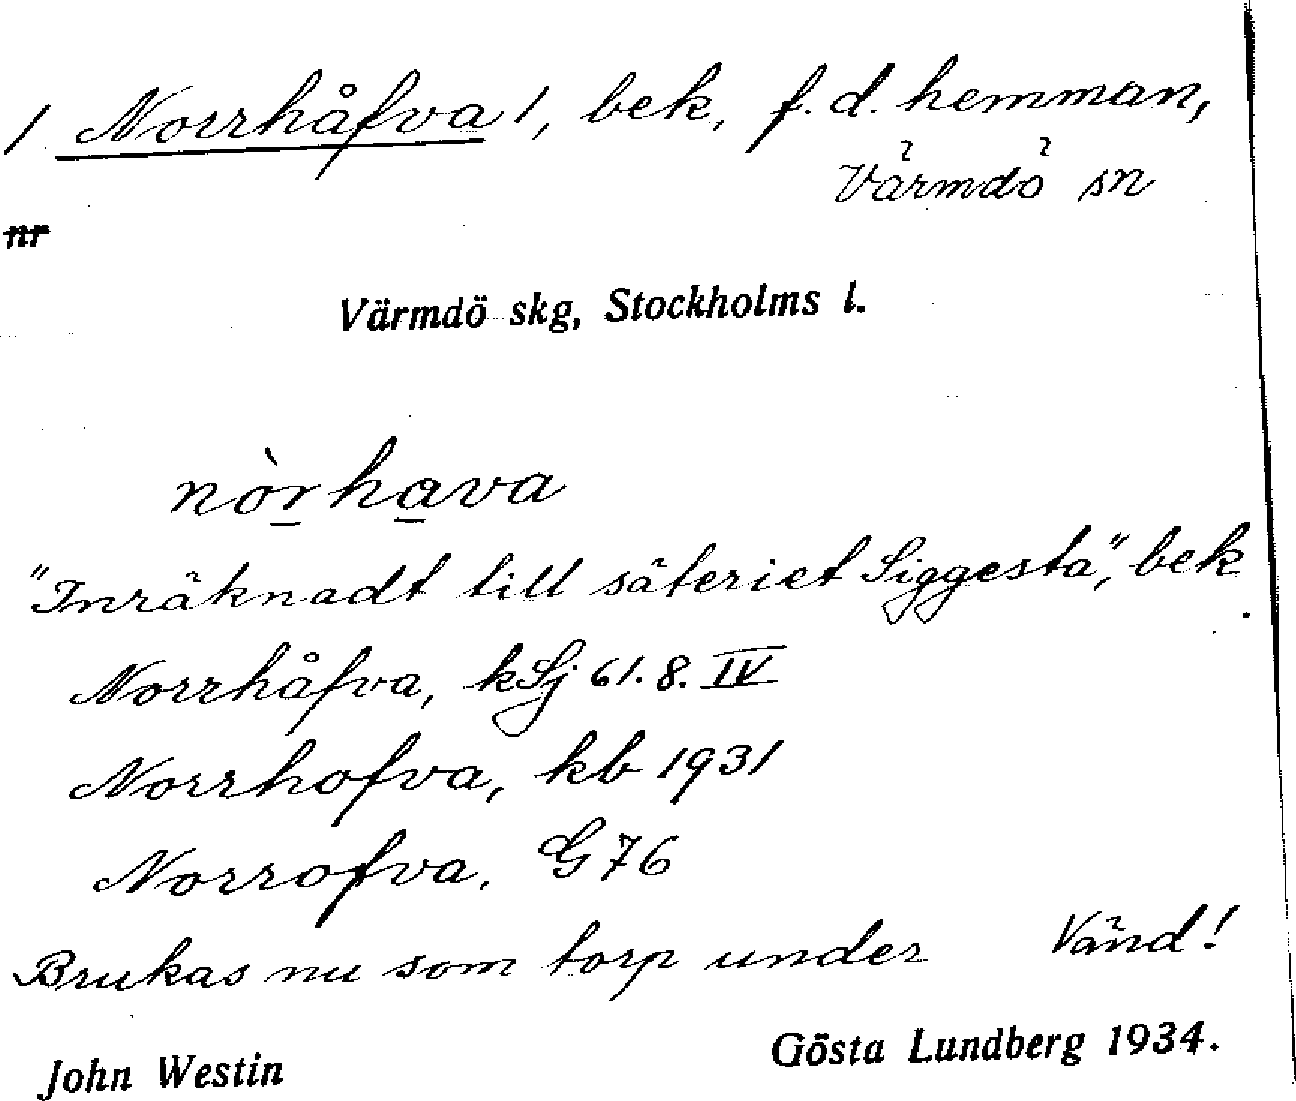 / Norrhåfva /, bek, f.d. hemman,
Värmdö sn
nr
Värmdö skg, Stockholms l.
nòrhava
"Inräknadt till säteriet Siggesta", bek.
Norrhåfva, kSj 61.8.IV
Norrhofva, kb 1931
Norrofva. G 76
Brukas nu som torp under Vänd!
John Westin Gösta Lundberg 1934.